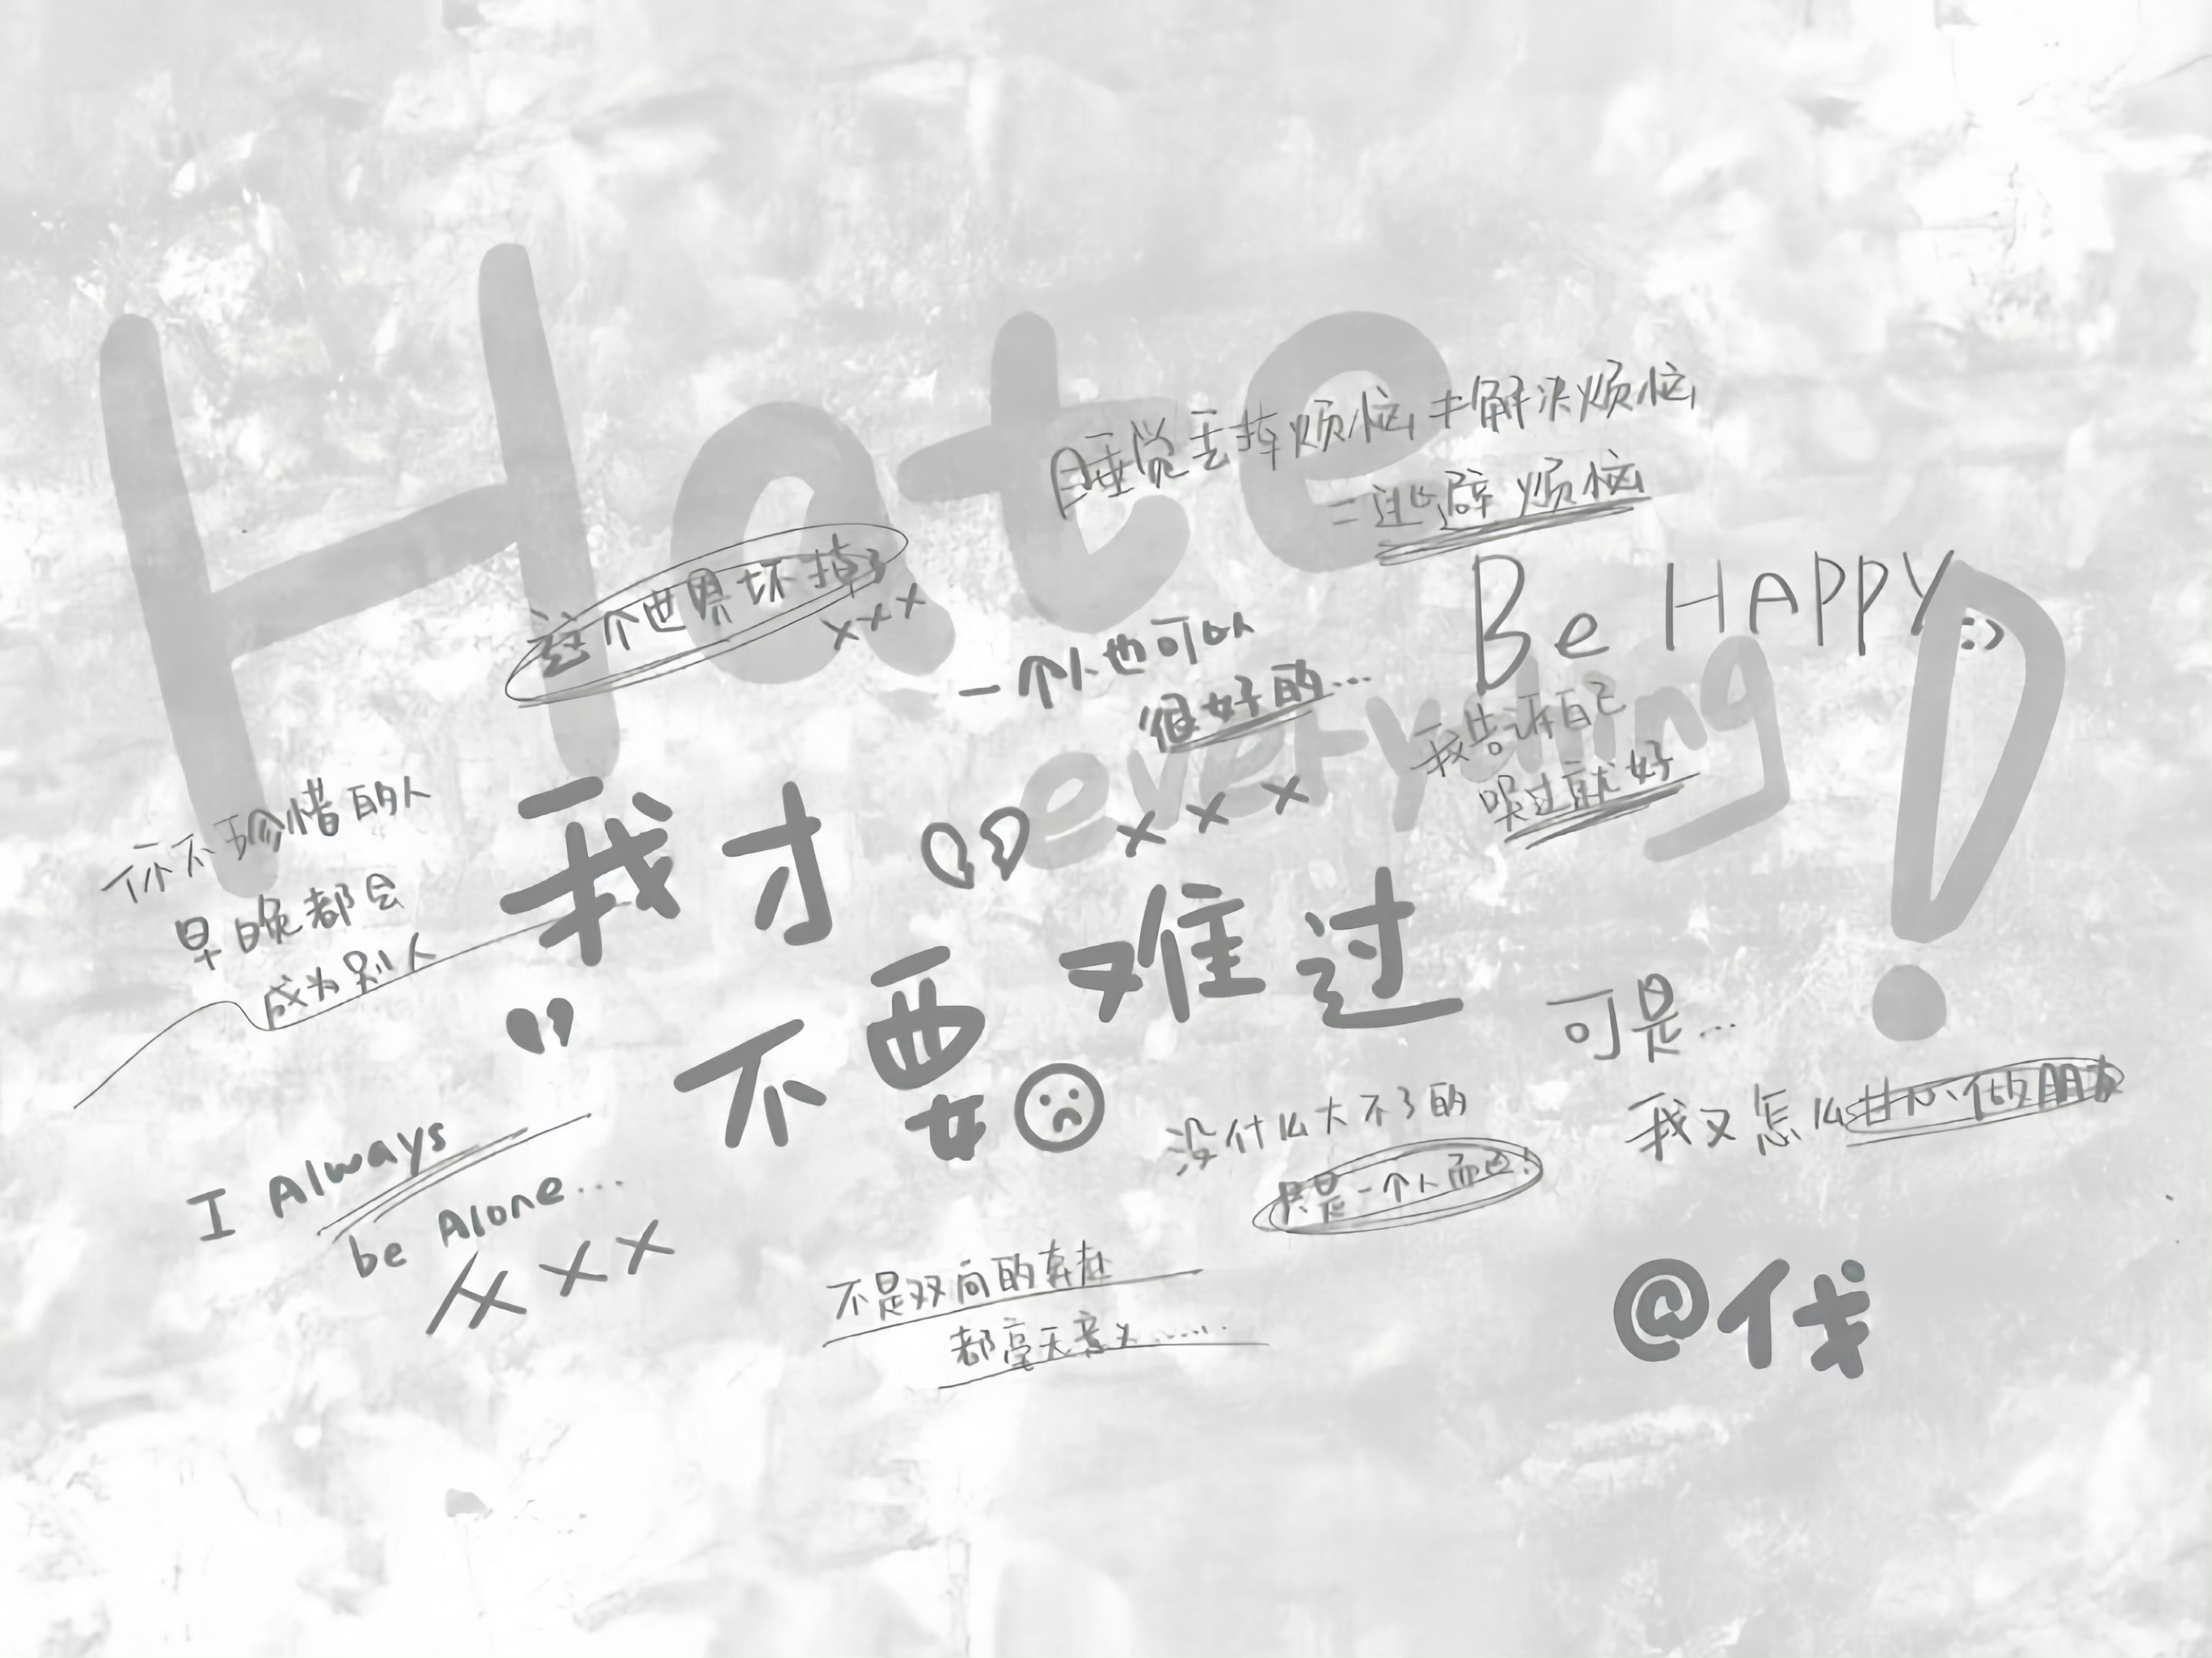 Hate
everything
!
睡觉丢掉烦恼≠解决烦恼
=逃避烦恼
这个世界坏掉了
xxx
Be HAPPY :)
一个人也可以
很好的...
我告诉自己
哭过就好
你不珍惜的人
早晚都会
成为别人
我才
xxx
不要难过
可是...
我又怎么甘心做朋友
没什么大不了的
只是一个人而已!
I Always
be Alone...
xxx
不是双向的奔赴
都毫无意义......
@伐